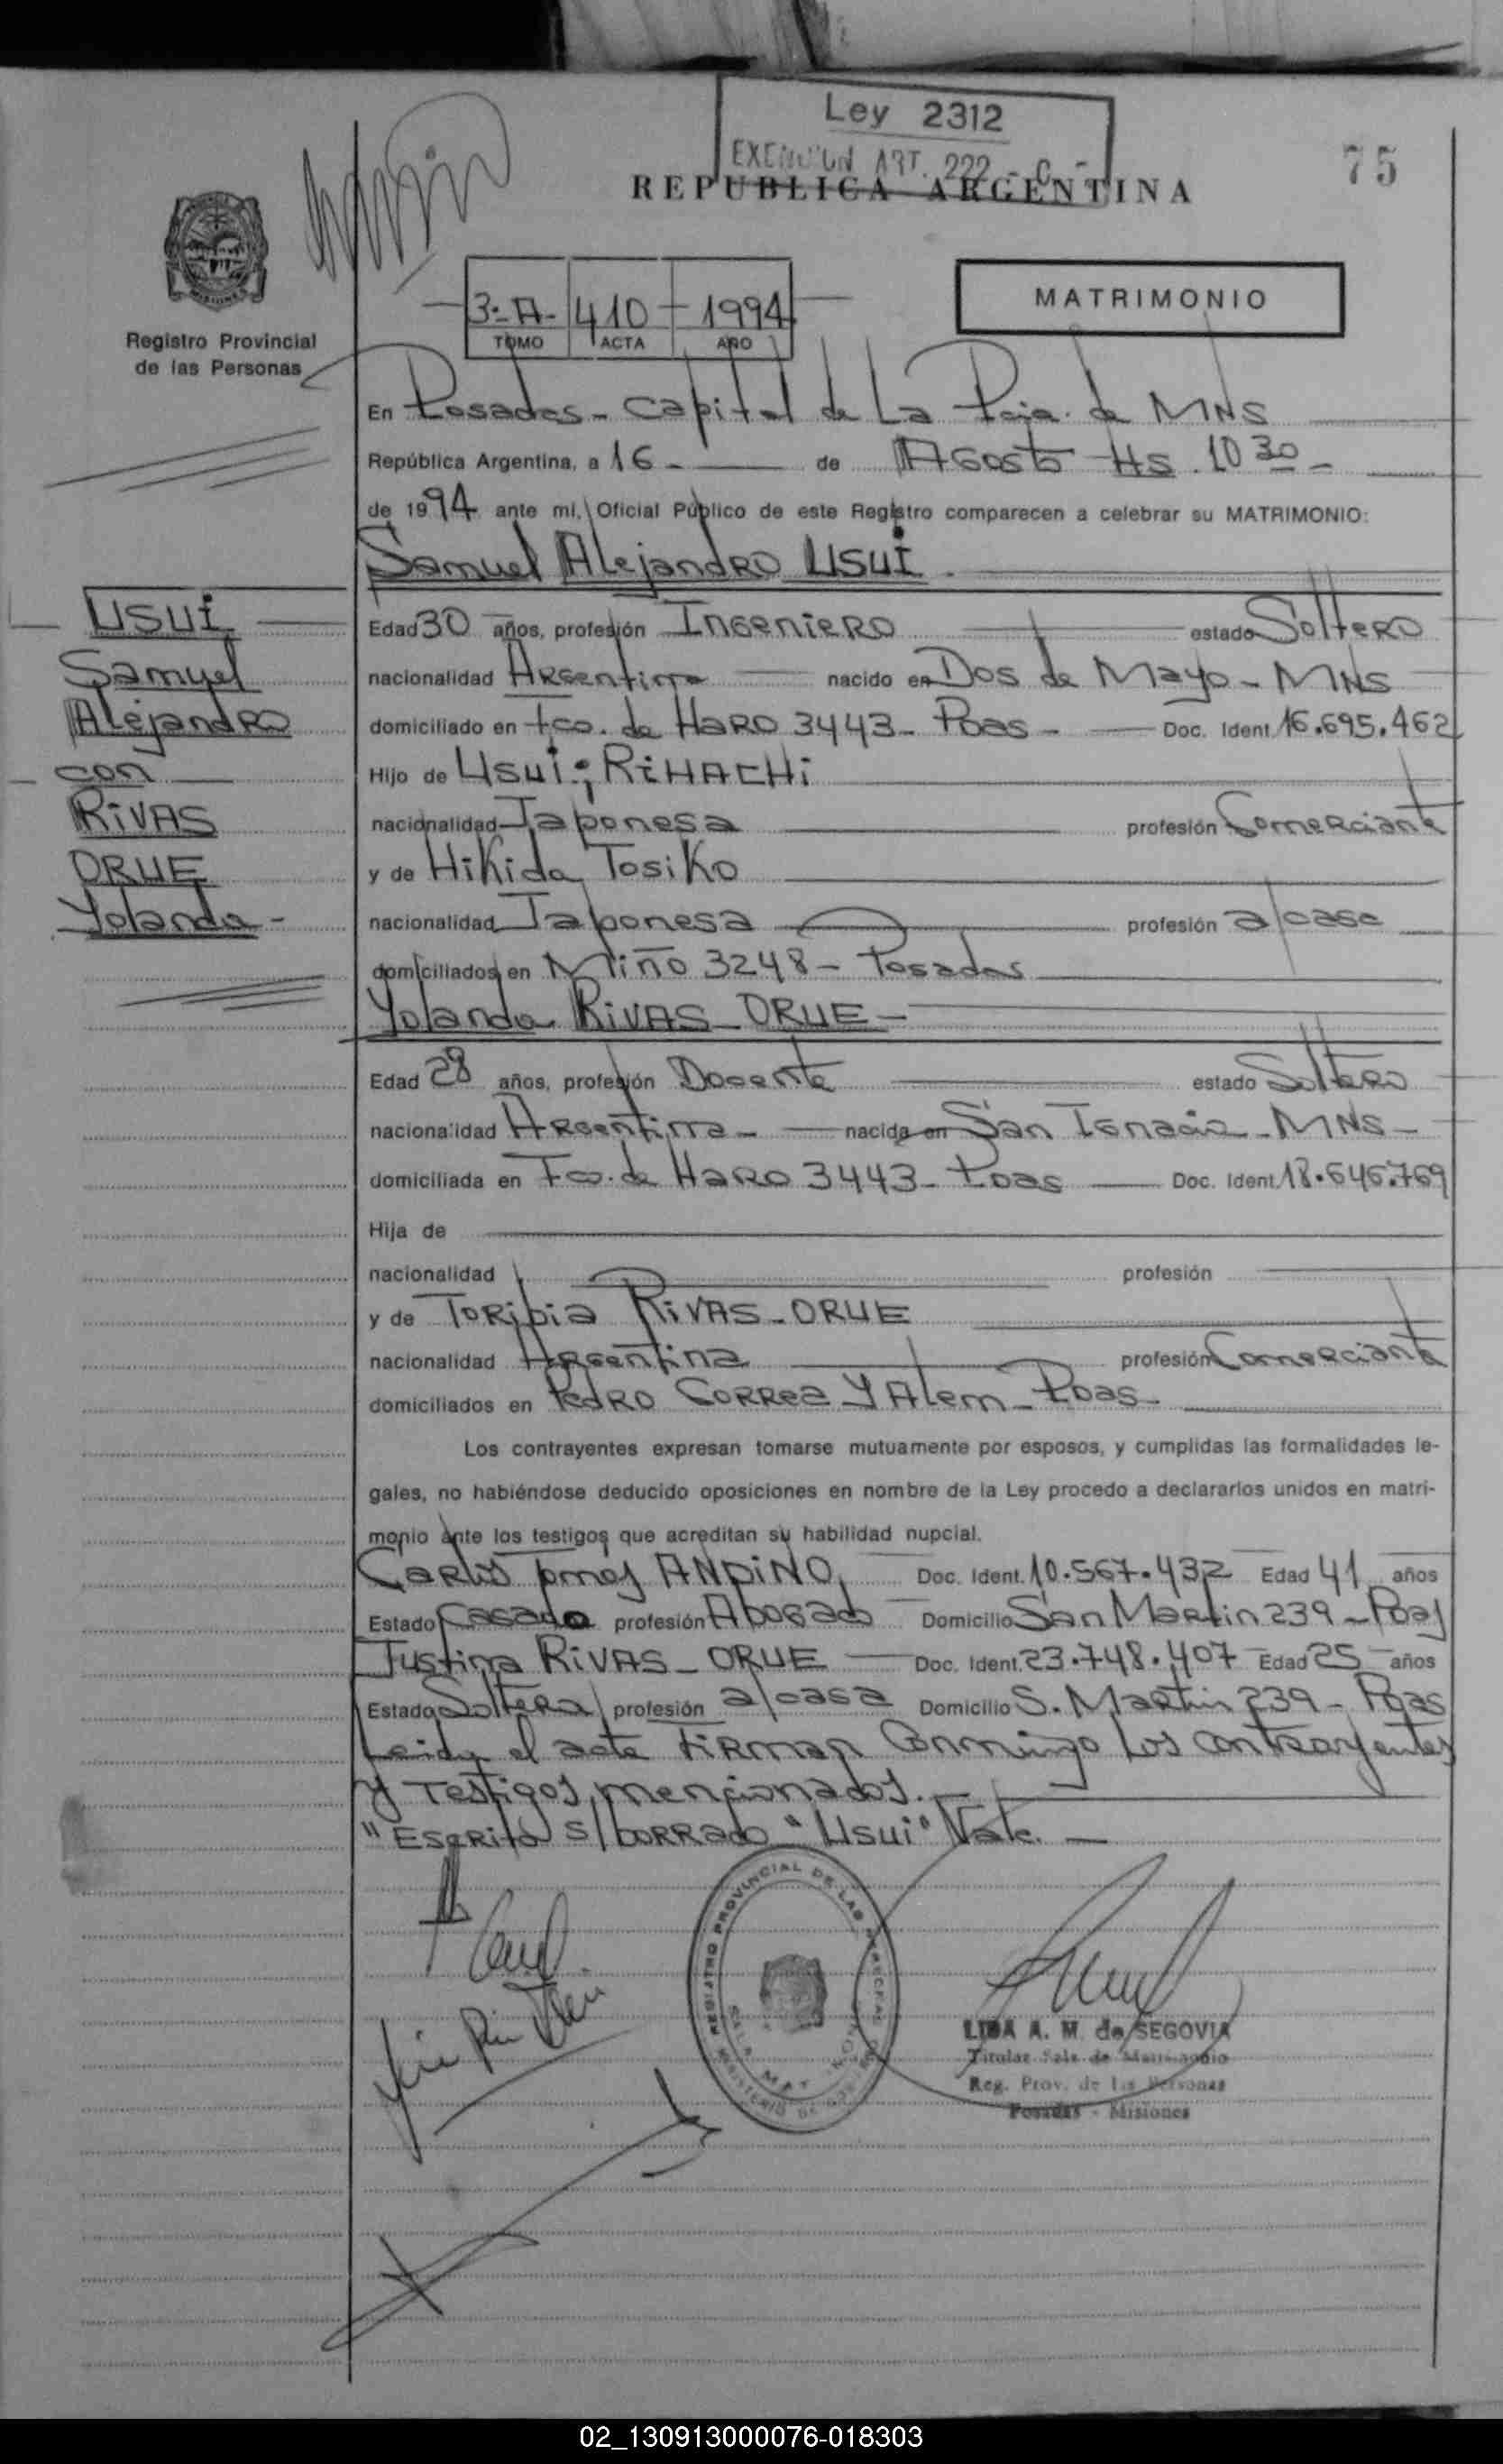 Ley 2312
EXENCION ART. 222
REPUBLICA ARGENTINA
75
3-A- 410 1994
TOMO ACTA AÑO
MATRIMONIO
Registro Provincial
de las Personas
En Posadas - Capital de La Pcia. de MNS
República Argentina, a 16 - de Agosto Hs. 10 30 -
de 1994 ante mí, Oficial Público de este Registro comparecen a celebrar su MATRIMONIO:
Samuel Alejandro Usui.
Usui
Samuel
Alejandro
con
RIVAS
ORUE
Yolanda -
Edad 30 años, profesión Ingeniero estado Soltero
nacionalidad Argentina nacido en Dos de Mayo - MNS
domiciliado en Fco. de Haro 3443 - Pdas - Doc. Ident. 16.695.462
Hijo de Usui; RiHACHi
nacionalidad Japonesa profesión Comerciante
y de Hikida Tosiko
nacionalidad Japonesa profesión a/casa
domiciliados en Miño 3248 - Posadas
Yolanda RIVAS - ORUE -
Edad 28 años, profesión Docente estado Soltero
nacionalidad Argentina - nacida en San Ignacio - MNS -
domiciliada en Fco. de Haro 3443 - Pdas Doc. Ident. 18.646.769
Hija de
nacionalidad profesión
y de Toribia RIVAS - ORUE
nacionalidad Argentina profesión Comerciante
domiciliados en Pedro Correa Y Alem - Pdas -
Los contrayentes expresan tomarse mutuamente por esposos, y cumplidas las formalidades le-
gales, no habiéndose deducido oposiciones en nombre de la Ley procedo a declararlos unidos en matri-
monio ante los testigos que acreditan su habilidad nupcial.
Carlos ANDINO, Doc. Ident. 10.567.432 Edad 41 años
Estado Casado profesión Abogado Domicilio San Martin 239 - Pdas
Justina RIVAS - ORUE Doc. Ident. 23.748.407 Edad 25 años
Estado Soltera profesión a/casa Domicilio S. Martin 239 - Pdas
Leida el acta firman conmigo los contrayentes
y testigos mencionados.
"Escrito s/borrado "Usui" Vale. -
REGISTRO PROVINCIAL DE LAS PERSONAS
MINISTERIO DE
LIDA A. M. de SEGOVIA
Titular Sala de Matrimonio
Reg. Prov. de las Personas
Posadas - Misiones
02_130913000076-018303